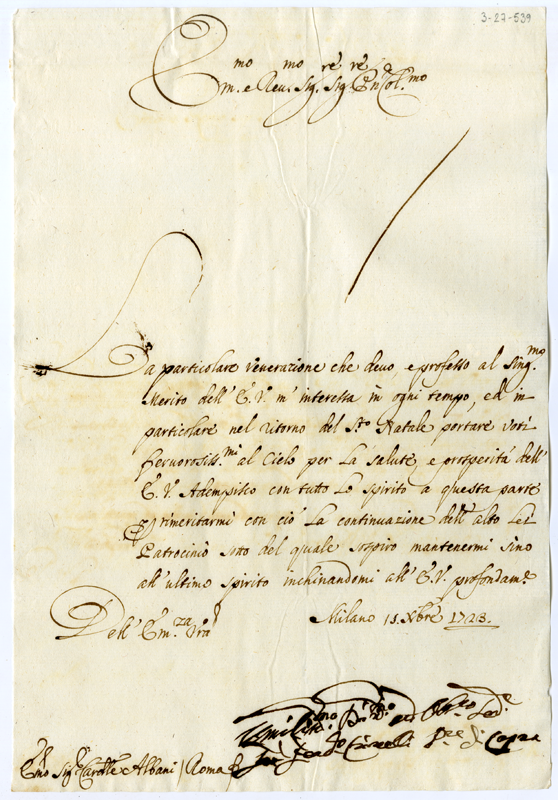 3-27-539
Em.mo e Rev.mo Sig.re Sig.re e Pñ Col.mo
La particolare venerazione che devo, e professo al Sing.mo
Merito dell' E. V.a m' interessa in ogni tempo, ed in
particolare nel ritorno del S.to Natale portare voti
fervorosiss.mi al Cielo per la salute, e prosperità dell'
E. V.a Adempisco con tutto lo spirito a questa parte
p rimeritarmi con ciò la continuazione dell' alto Lei
Patrocinio sotto del quale sospiro mantenermi sino
all' ultimo spirito inchinandomi all' E. V. profondam.e
Dell' Em.za V.ra Milano 15. Xbre 1723.
Umiliss.mo Ser.e
di
Emo Sig.r Card.le Albani / Roma